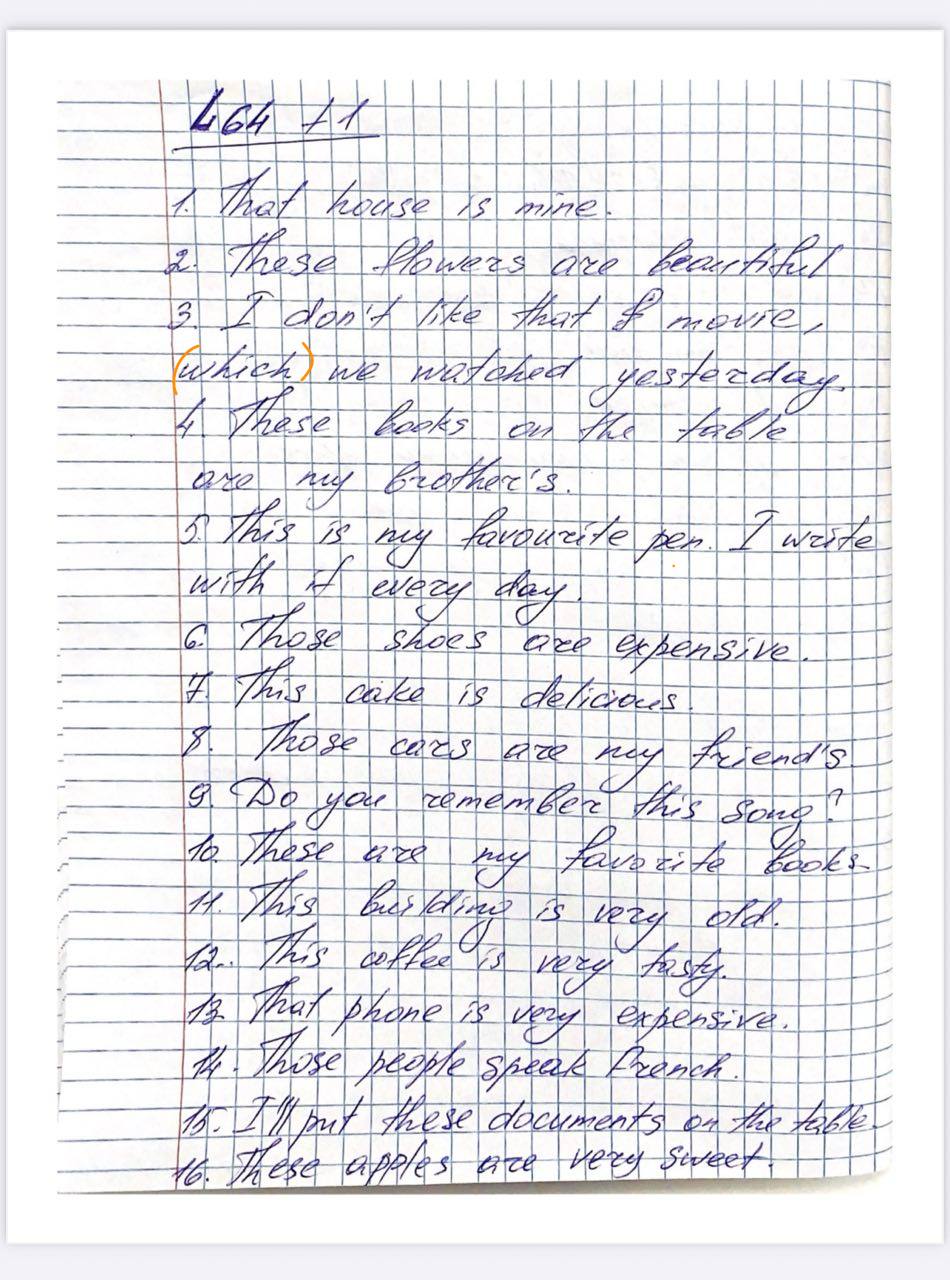 L64 t1
1. That house is mine.
2. These flowers are beautiful
3. I don't like that movie,
(which) we watched yesterday.
4. These books on the table
are my brother's.
5. This is my favourite pen. I write
with it every day.
6. Those shoes are expensive.
7. This cake is delicious.
8. Those cars are my friend's.
9. Do you remember this song?
10. These are my favorite books.
11. This building is very old.
12. This coffee is very tasty.
13. That phone is very expensive.
14. Those people speak French.
15. I'll put these documents on the table.
16. These apples are very sweet.